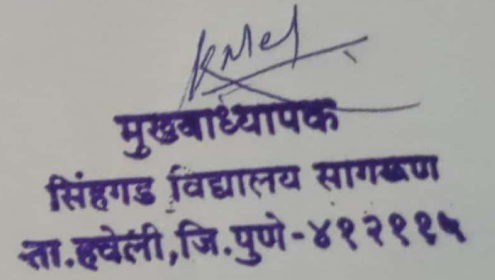 मुखवाध्यापक
सिंहगड विद्यालय सागरूण
ता.हवेली,जि.पुणे-४१२११५